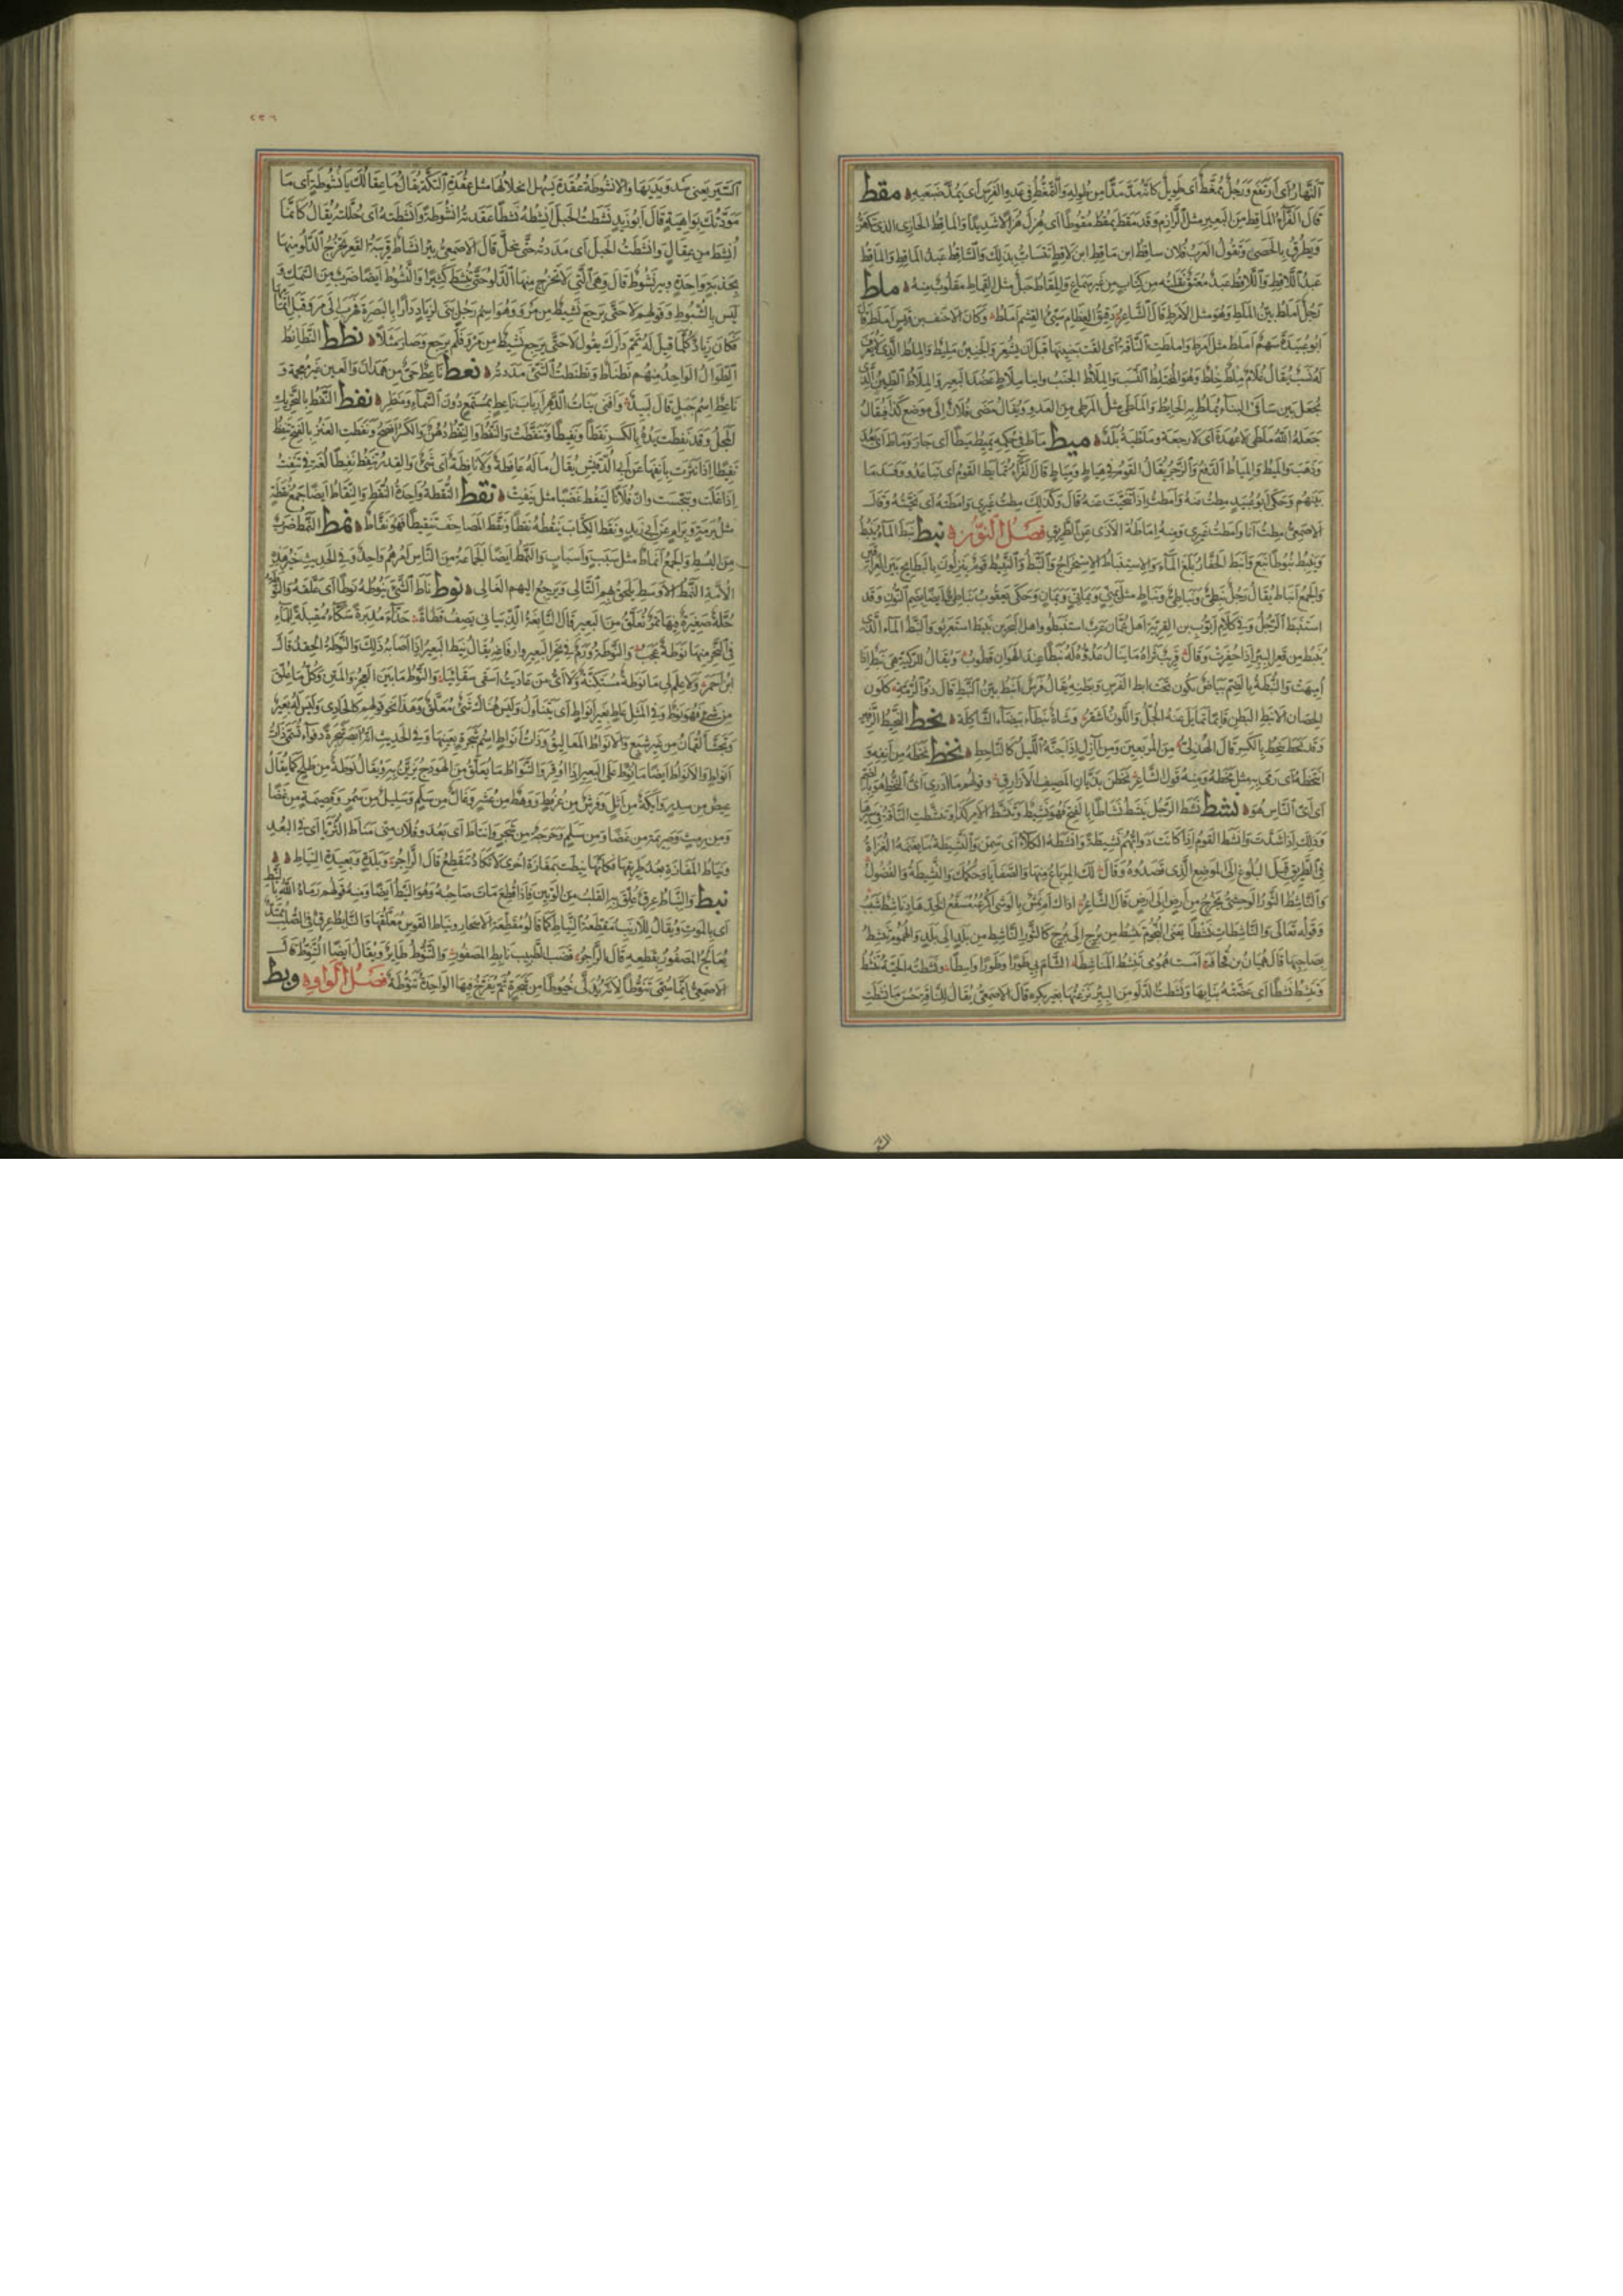 النَّهَارُ أَى ارْتَفَعَ وَرَجُلٌ مُمَّغِطٌ أَى طَوِيلٌ كَأَنَّهُ مُدَّ مَدًّا مِن طُولِهِ وَالتَّمَغُّطُ فِى عَدوِ الفَرَسِ أَى يَمُدُّ ضَبعَيهِ مقط
قَالَ الفَرَّاءُ المَاقِطُ مِنَ البَعِيرِ مِثلُ الرَّازِمِ وَقَد مَقَطَ يَمقُطُ مُقُوطًا أَى هُزِلَ هُزَالًا شَدِيدًا وَالمَاقِطُ الحَازِى الذى يَتَكَهَّنُ
وَيَطرُقُ بِالحَصَى وَتَقُولُ العَرَبُ فُلَان سَاقِطُ ابن مَاقِطِ ابن لَاقِطٍ تَتَسَابُّ بِذٰلِكَ وَالسَّاقِطُ عَبدُ المَاقِطِ وَالمَاقِطُ
عَبدُ اللَّاقِطِ وَاللَّاقِطُ عَبدٌ مُعتَقٌ نَقَلتُه مِن كِتَابٍ مِن غَيرِ سَمَاعٍ وَالمِقَاطُ حَبلٌ مِثلُ القِمَاطِ مَقلُوبٌ مِنهُ ملط
رَجُلٌ أَملَطُ بَيِّنُ المَلَطِ وَهُوَ مِثلُ الأَمرَطِ قَالَ الشَّاعِرُ وَكَانَ الأَحنَفُ بن قَيسٍ أَملَطَ
أَبُو عُبَيدَةَ سَهمٌ أَملَطُ مِثلُ أَمرَطَ وَأَملَطَتِ النَّاقَةُ أَى أَلقَت جَنِينَهَا قَبلَ أَن يُشعِرَ وَالجَنِينُ مَلِيطٌ وَالمِلطُ الَّذِى لَا يُعرَفُ
لَهُ نَسَبٌ يُقَالُ غُلَامٌ مِلطٌ خِلطٌ وَهُوَ المُختَلِطُ النَّسَبِ وَالمِلَاطُ الجَنبُ وَابنَا مِلَاطٍ عَضُدَا البَعِيرِ وَالمِلَاطُ الطِّينُ الَّذِى
يُجعَلُ بَينَ سَافَىِ البِنَاءِ يُملَطُ بِهِ الحَائِطُ وَالمَلَطَى مِثلُ المَرَطَى مِنَ العَدوِ وَيُقَالُ مَضَى فُلَانٌ إِلَى مَوضِعِ كَذَا فَيُقَالُ
جَعَلَهُ اللهُ مَلَطَى لَا عُهدَةَ أَى لَا رَجعَةَ وَمَلَطيَةُ بَلَدٌ ميط مَاطَ فِى حُكمِهِ يَمِيطُ مَيطًا أَى جَارَ وَمَاطَ أَى بَعُدَ
وَذَهَبَ وَالمَيطُ وَالمِيَاطُ الدَّفعُ وَالزَّجرُ يُقَالُ القَومُ فِى هِيَاطٍ وَمِيَاطٍ قَالَ الفَرَّاءُ تَمَايَطَ القَومُ أَى تَبَاعَدُو وَفَسَدَ مَا
بَينَهُم وَحَكَى أَبُو عُبَيدٍ مِطتُ عَنهُ وَأَمَطتُ إِذَا تَنَحَّيتَ عَنهُ قَالَ وَكَذٰلِكَ مِطتُ غَيرِى وَأَمَطتُهُ أَى نَحَّيتُهُ وَقَالَ
الأَصمَعِىُّ مِطتُ أَنَا وَأَمَطتُ غَيرِى وَمِنهُ إِمَاطَةُ الأَذَى عَنِ الطَّرِيقِ فَصلُ النُّونِ نبط نَبَطَ المَاءُ يَنبُطُ
وَيَنبِطُ نُبُوطًا نَبَعَ وَأَنبَطَ الحَفَّارُ بَلَغَ المَاءَ وَالاِستِنبَاطُ الاِستِخرَاجُ وَالنَّبَطُ وَالنَّبِيطُ قَومٌ يَنزِلُونَ بِالبَطَائِحِ بَينَ العِرَاقَينِ
وَالجَمعُ أَنبَاطٌ يُقَالُ رَجُلٌ نَبَطِىٌّ وَنَبَاطِىٌّ وَنَبَاطٍ مِثلُ يَمَنِىٍّ وَيَمَانِىٍّ وَيَمَانٍ وَحَكَى يَعقُوبُ نُبَاطِىٌّ أَيضًا بِضَمِّ النُّونِ وَقَد
استَنبَطَ الرَّجُلُ وَفِى كَلَامِ أَيُّوبَ بن القِرِّيَّةِ أَهلُ عُمَانَ عَرَبٌ استَنبَطُو وَأَهلُ البَحرَينِ نَبِيطٌ استَعرَبُو وَالنَّبَطُ المَاءُ الَّذِى
يَنبُطُ مِن قَعرِ البِئرِ إِذَا حُفِرَتْ وَقَالَ قَرِيبٌ ثَرَاهُ مَا يَنَالُ عَدُوُّهُ لَهُ نَبَطًا عِندَ الهَوَانِ قَطُوبُ وَيُقَالُ لِلرَّكِيَّةِ هِىَ نَبَطٌ إِذَا
أُمِيهَتْ وَالنُّبطَةُ بِالضَّمِّ بَيَاضٌ يَكُونُ تَحتَ إِبطِ الفَرَسِ وَبَطنِهِ يُقَالُ فَرَسٌ أَنبَطُ بَيِّنُ النَّبَطِ قَالَ ذُو الرُّمَّةِ كَلَونِ
الحِصَانِ الأَنبَطِ البَطنِ قَائِمًا تَمَايَلَ عَنهُ الجُلُّ وَاللَّونُ أَشقَرُ وَشَاةٌ نَبطَاءُ بَيضَاءُ الشَّاكِلَةِ نحط النَّحِيطُ الزَّفِيرُ
وَقَد نَحَطَ يَنحِطُ بِالكَسرِ قَالَ الهُذَلِىُّ مِنَ المُربَعِينَ وَمِن آزِلٍ إِذَا جَنَّهُ اللَّيلُ كَالنَّاحِطِ نخط نَخَطَهُ مِن أَنفِهِ وَ
انتَخَطَهُ أَى رَمَى بِهِ مِثلُ مَخَطَهُ وَمِنهُ قَولُ الشَّاعِرِ وَقَولُهُم مَا أَدرِى أَىُّ النُّخطِ هُوَ بِالضَّمِّ
أَى أَىُّ النَّاسِ هُوَ نشط نَشِطَ الرَّجُلُ يَنشَطُ نَشَاطًا بِالفَتحِ فَهُوَ نَشِيطٌ وَتَنَشَّطَ لِأَمرِ كَذَا وَتَنَشَّطَتِ النَّاقَةُ فِى سَيرِهَا
وَذٰلِكَ إِذَا شَدَّت وَأَنشَطَ القَومُ إِذَا كَانَت دَوَابُّهُم نَشِيطَةً وَأَنشَطَهُ الكَلَأُ أَى سَمَّنَ وَالنَّشِيطَةُ مَا يَغنَمُهُ الغُزَاةُ
فِى الطَّرِيقِ قَبلَ البُلُوغِ إِلَى المَوضِعِ الَّذِى قَصَدُوهُ وَقَالَ لَكَ المِربَاعُ مِنهَا وَالصَّفَايَا وَحُكمُكَ وَالنَّشِيطَةُ وَالفُضُولُ
وَالنَّاشِطُ الثَّورُ الوَحشِىُّ يَخرُجُ مِن أَرضٍ إِلَى أَرضٍ قَالَ الشَّاعِرُ
وَقَولُهُ تَعَالَى وَالنَّاشِطَاتِ نَشطًا يَعنِى النُّجُومَ تَنشِطُ مِن بُرجٍ إِلَى بُرجٍ كَالثَّورِ النَّاشِطِ مِن بَلَدٍ إِلَى بَلَدٍ وَالهُمُومُ تَنشِطُ
بِصَاحِبِهَا قَالَ هِميَانُ بن قُحَافَةَ أَمسَت هُمُومِى تَنشِطُ المَنَاشِطَا الشَّامَ بِى طَورًا وَطَورًا وَاسِطَا وَنَشَطَتهُ الحَيَّةُ تَنشُطُ
وَتَنشِطُ نَشطًا أَى عَضَّتهُ بِنَابِهَا وَنَشَطتُ الدَّلوَ مِنَ البِئرِ نَزَعتُهَا بِغَيرِ بَكرَةٍ قَالَ الأَصمَعِىُّ يُقَالُ لِلنَّاقَةِ حَسُنَ مَا نَشَطَتِ
٢٢٦
السَّيرَ يَعنِى سَدوَ يَدَيهَا وَالأُنشُوطَةُ عُقدَةٌ يَسهُلُ انحِلَالُهَا مِثلُ عُقدَةِ التِّكَّةِ يُقَالُ مَا عِقَالُكَ بِأُنشُوطَةٍ أَى مَا
مَوَدَّتُكَ بِوَاهِيَةٍ قَالَ أَبُو زَيدٍ نَشَطتُ الحَبلَ أَنشُطُهُ نَشطًا عَقَدتُهُ أُنشُوطَةً وَأَنشَطتُهُ أَى حَلَلتُهُ يُقَالُ كَأَنَّمَا
أُنشِطَ مِن عِقَالٍ وَانتَشَطتُ الحَبلَ أَى مَدَدتُهُ حَتَّى يَنحَلَّ قَالَ الأَصمَعِىُّ بِئرٌ أَنشَاطٌ قَرِيبَةُ القَعرِ تَخرُجُ الدَّلوُ مِنهَا
بِجَذبَةٍ وَاحِدَةٍ وَبِيرٌ نَشُوطٌ قَالَ وَهِىَ الَّتِى لَا تَخرُج مِنهَا الدَّلوُ حَتَّى تُنشَطَ كَثِيرًا وَالنَّشُوطُ أَيضًا ضَربٌ مِنَ السَّمَكِ وَ
لَيسَ بِالشَّبُّوطِ وَقَولُهُم لَا حَتَّى يَرجِعَ نَشِيطٌ مِن مَروَ وَهُوَ اسمُ رَجُلٍ بَنَى لِزِيَادٍ دَارًا بِالبَصرَةِ فَهَرَبَ إِلَى مَروَ قَبلَ إِتمَامِهَا
فَكَانَ زِيَادٌ كُلَّمَا قِيلَ لَهُ تَمِّم دَارَكَ يَقُولُ لَا حَتَّى يَرجِعَ نَشِيطٌ مِن مَروَ فَلَم يَرجِع وَصَارَ مَثَلًا نطط النَّطَانِطُ
الطِّوَالُ الوَاحِدُ مِنهُم نَطنَاطٌ وَنَطنَطتُ الشَّىءَ مَدَدتُهُ نعط نَاعِطٌ حَىٌّ مِن هَمدَانَ وَالعَينُ غَيرُ مُعجَمَةٍ وَ
نَاعِطٌ اسمُ جَبَلٍ قَالَ لَبِيدٌ وَأَفنَى بَنَاتُ الدَّهرِ أَربَابَ نَاعِطٍ بِمُستَمَعٍ دُونَ السَّمَاءِ وَمَنظَرِ نفط النَّفَطُ بِالتَّحرِيكِ
المَجلُ وَقَد نَفِطَت يَدُهُ بِالكَسرِ نَفَطًا وَنَفِيطًا وَتَنَفَّطَتْ وَالنَّفطُ وَالنِّفطُ دُهنٌ وَالكَسرُ أَفصَحُ وَنَفَطَتِ العَنزُ بِالفَتحِ تَنفِطُ
نَفِيطًا إِذَا نَثَرَت بِأَنفِهَا عَن أَبِى الدُّقَيشِ يُقَالُ مَا لَهُ عَافِطَةٌ وَلَا نَافِطَةٌ أَى شَىءٌ وَالقِدرُ تَنفِطُ نَفِيطًا لُغَةٌ فِى تَنفِتُ
إِذَا غَلَت وَتَبَجَّسَت وَإِنَّ فُلَانًا لَيَنفِطُ غَضَبًا مِثلُ يَنفِتُ نقط النُّقطَةُ وَاحِدَةُ النُّقَطِ وَالنِّقَاطُ أَيضًا جَمعُ نُقطَةٍ
مِثلُ بُرمَةٍ وَبِرَامٍ عَن أَبِى زَيدٍ وَنَقَطَ الكِتَابَ يَنقُطُهُ نَقطًا وَنَقَّطَ المَصَاحِفَ تَنقِيطًا فَهُوَ نَقَّاطٌ نمط النَّمَطُ ضَربٌ
مِنَ البُسُطِ وَالجَمعُ أَنمَاطٌ مِثلُ سَبَبٍ وَأَسبَابٍ وَالنَّمَطُ أَيضًا الجَمَاعَةُ مِنَ النَّاسِ أَمرُهُم وَاحِدٌ وَفِى الحَدِيثِ خَيرُ هٰذِهِ
الأُمَّةِ النَّمَطُ الأَوسَطُ يَلحَقُ بِهِمِ التَّالِى وَيَرجِعُ إِلَيهِمِ الغَالِى نوط نَاطَ الشَّىءَ يَنُوطُهُ نَوطًا أَى عَلَّقَهُ وَالنَّوطُ
جُلَّةٌ صَغِيرَةٌ فِيهَا تَمرٌ تُعَلَّقُ مِنَ البَعِيرِ قَالَ النَّابِغَةُ الذُّبيَانِى يَصِفُ قَطَاةً حَذَّاءَ مُدبِرَةً سَكَّاءَ مُقبِلَةً لِلمَاءِ
فِى النَّحرِ مِنهَا نَوطَةٌ عَجَبُ وَالنَّوطَةُ وَرَمٌ فِى نَحرِ البَعِيرِ وَأَرفَاغِهِ يُقَالُ نِيطَ البَعِيرُ إِذَا أَصَابَهُ ذٰلِكَ وَالنَّوطَةُ الحِقدُ قَالَ
ابنُ أَحمَرَ وَلَا عِلمَ لِى مَا نَوطَةٌ مُستَكِنَّةٌ وَلَا أَىُّ مَن عَادَيتُ أَسقَى سِقَائِيَا وَالنَّوطُ مَا بَينَ العَجُزِ وَالمَتنِ وَكُلُّ مَا عُلِّقَ
مِن شَىءٍ فَهُوَ نَوطٌ وَفِى المَثَلِ عَاطٍ بِغَيرِ أَنوَاطٍ أَى يَتَنَاوَلُ وَلَيسَ هُنَاكَ شَىءٌ مُعَلَّقٌ وَهٰذَا نَحوُ قَولِهِم كَالحَادِى وَلَيسَ لَهُ بَعِيرٌ
وَتَجَشَّأَ لُقمَانُ مِن غَيرِ شِبَعٍ وَالأَنوَاطُ المَعَالِيقُ وَذَاتُ أَنوَاطٍ اسمُ شَجَرَةٍ بِعَينِهَا وَفِى الحَدِيثِ أَنَّهُ أَبصَرَ شَجَرَةً دَفوَاءَ تُسَمَّى ذَاتَ
أَنوَاطٍ وَالأَنوَاطُ أَيضًا مَا نُوِّطَ عَلَى البَعِيرِ إِذَا أُوقِرَ وَالتَّنوَاطُ مَا يُعَلَّقُ مِنَ الهَودَجِ يُزَيَّنُ بِهِ وَيُقَالُ نَوطَةٌ مِن طَلحٍ كَمَا يُقَالُ
عِيصٌ مِن سِدرٍ وَأَيكَةٌ مِن أَثلٍ وَفَرشٌ مِن عُرفُطٍ وَوَهطٌ مِن عُشَرٍ وَغَالٌّ مِن سَلَمٍ وَسَلِيلٌ مِن سَمُرٍ وَقَصِيمَةٌ مِن غَضًا
وَمِن رِمثٍ وَصَرِيمَةٌ مِن غَضًا وَمِن سَلَمٍ وَحَرَجَةٌ مِن شَجَرٍ وَانتَاطَ أَى بَعُدَ وَفُلَانٌ مِنِّى مَنَاطَ الثُّرَيَّا أَى فِى البُعدِ
وَنِيَاطُ المَفَازَةِ بُعدُ طَرِيقِهَا فَكَأَنَّهَا نِيطَت بِمَفَازَةٍ أُخرَى لَا تَكَادُ تَنقَطِعُ قَالَ الرَّاجِزُ وَبَلدَةٍ بَعِيدَةِ النِّيَاطِ
نيط وَالنِّيَاطُ عِرقٌ عُلِّقَ بِهِ القَلبُ مِنَ الوَتِينِ فَإِذَا قُطِعَ مَاتَ صَاحِبُهُ وَهُوَ النَّيطُ أَيضًا وَمِنهُ قَولُهُم رَمَاهُ اللهُ بِالنَّيطِ
أَى بِالمَوتِ وَيُقَالُ لِلأَرنَبِ مُقَطِّعَةُ النِّيَاطِ كَمَا قَالُو مُقَطِّعَةُ الأَسحَارِ وَنِيَاطُ القَوسِ مُعَلَّقُهَا وَالنَّائِطُ عِرقٌ فِى الصُّلبِ
يُعَالَجُ المَصفُورُ بِقَطعِهِ قَالَ الرَّاجِزُ قَضبَ الطَّبِيبِ نَائِطَ المَصفُورِ وَالتَّنَوُّطُ طَائِرٌ وَيُقَالُ أَيضًا التُّنَوِّطُ قَالَ
الأَصمَعِىُّ إِنَّمَا سُمِّىَ تَنَوُّطًا لِأَنَّهُ يُدَلِّى خُيُوطًا مِن شَجَرَةٍ ثُمَّ يُفَرِّخُ فِيهَا الوَاحِدَةُ تَنَوُّطَةٌ فَصلُ الوَاوِ وبط